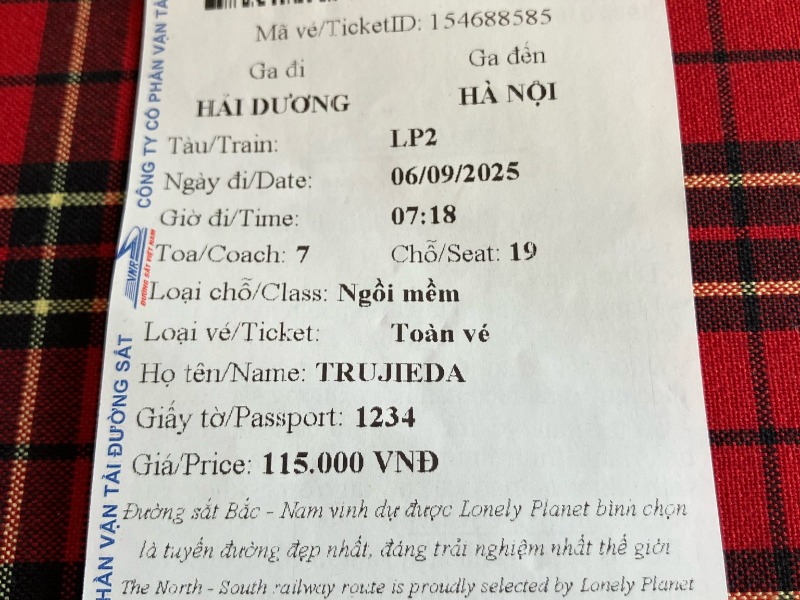 Mã vé/TicketID: 154688585
Ga đi
Ga đến
HẢI DƯƠNG
HÀ NỘI
Tàu/Train: LP2
Ngày đi/Date: 06/09/2025
Giờ đi/Time: 07:18
Toa/Coach: 7 Chỗ/Seat: 19
Loại chỗ/Class: Ngồi mềm
Loại vé/Ticket: Toàn vé
Họ tên/Name: TRUJIEDA
Giấy tờ/Passport: 1234
Giá/Price: 115.000 VNĐ
Đường sắt Bắc - Nam vinh dự được Lonely Planet bình chọn
là tuyến đường đẹp nhất, đáng trải nghiệm nhất thế giới
The North - South railway route is proudly selected by Lonely Planet
CÔNG TY CỔ PHẦN VẬN TẢI
VNR
ĐƯỜNG SẮT VIỆT NAM
PHẦN VẬN TẢI ĐƯỜNG SẮT